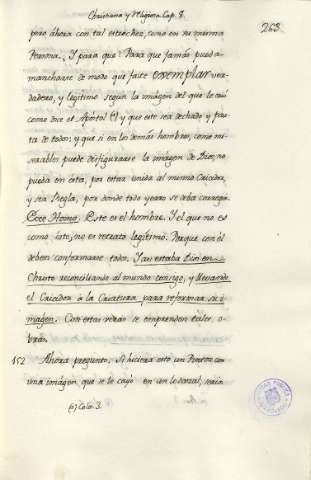 Christiana y Religiosa Cap. 8.
268
pero ahora con tal estrechez, como en su misma
Persona. Y para que? Para que jamás pueda
mancharse de modo que falte exemplar ver-
dadero, y legitimo segun la imagen del que le crió
como dice el Apóstol (6) y que este sea dechado y
de todos; y que si en los demas hombres, como mi-
serables puede desfigurarse la imagen de Dios, no
pueda en ésta, por estar unida al mismo Criador,
y sea Regla, por donde todo yerro se deba corregir.
Ecce Homo. Este es el hombre. Y el que no es
como éste, no es retrato legitimo. Porque con él
deben conformarse todos. Y assi estaba Dios en
Christo reconciliando al mundo consigo, y llevando
el Criador à la Criatura para reformar su i-
magen. Con estas veras se emprenden tales o-
bras.
152 Ahora pregunto. Si hiciera esto un Pintor con
una imagen, que se le cayó en un lodazal, seria
(6) Colos. 3.